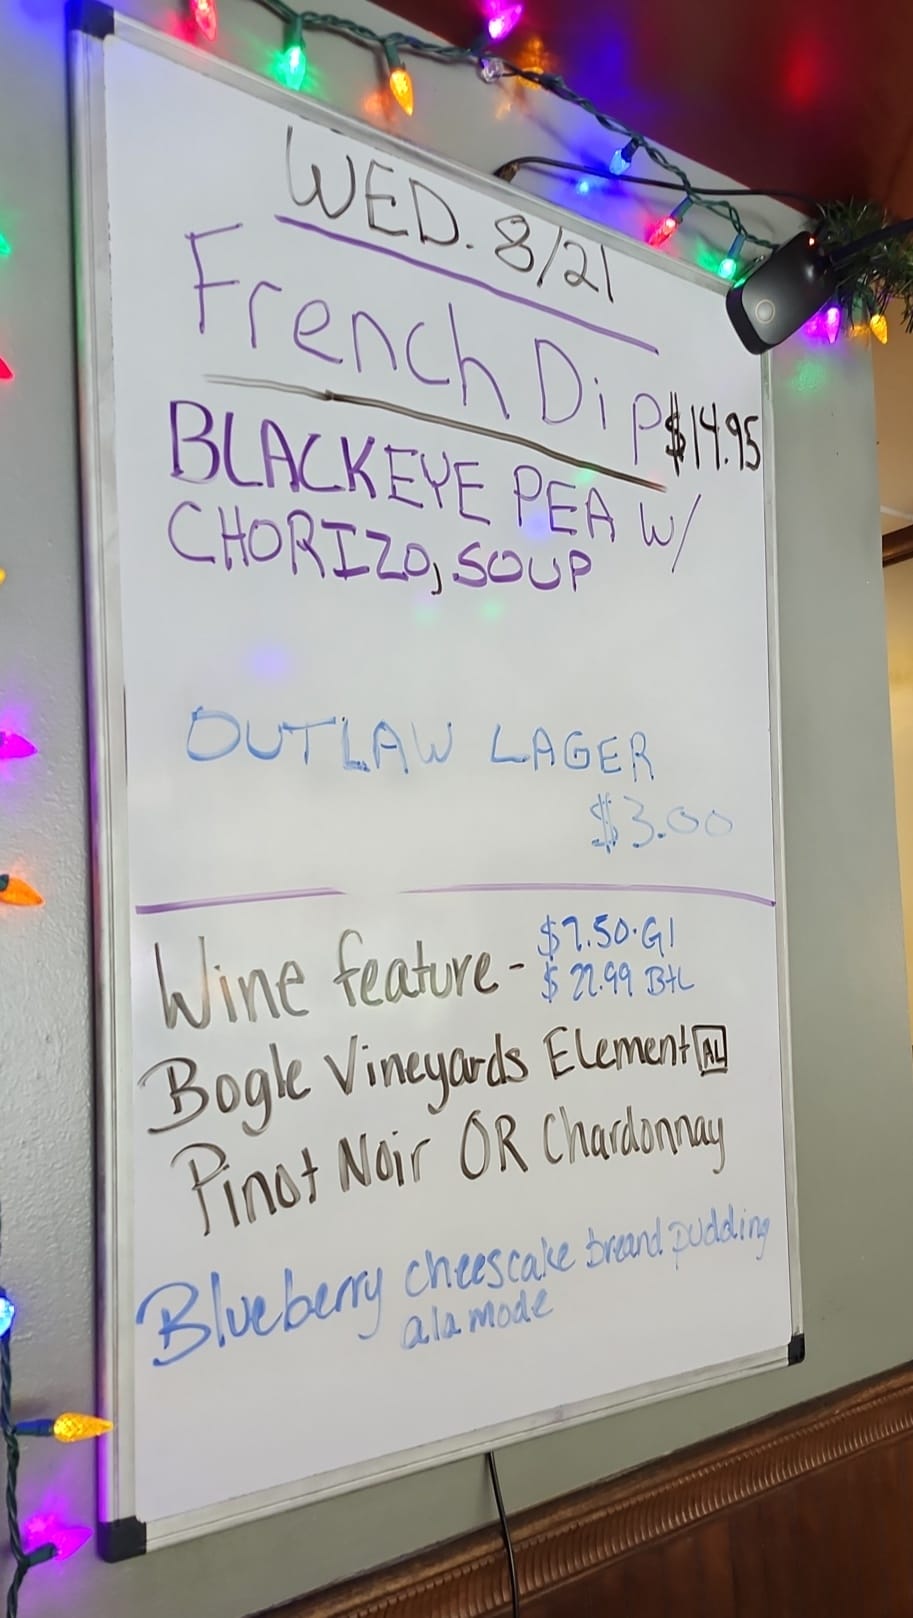 WED. 8/21
French Dip $14.95
BLACKEYE PEA W/
CHORIZO, SOUP
OUTLAW LAGER
$3.00
Wine feature - $7.50 · Gl
$22.99 Btl
Bogle Vineyards Element AL
Pinot Noir OR Chardonnay
Blueberry cheescake breand pudding
ala mode